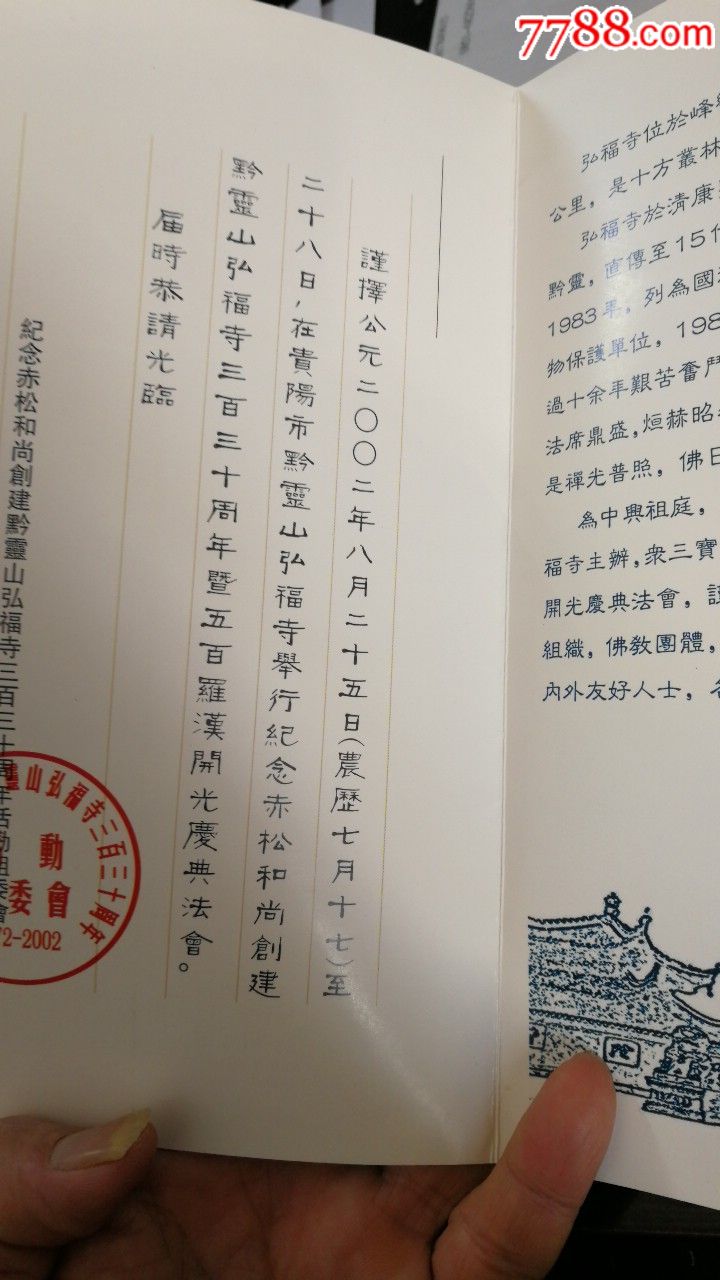 7788.com
謹擇公元二〇〇二年八月二十五日(農歷七月十七)至
二十八日,在貴陽市黔靈山弘福寺舉行紀念赤松和尚創建
黔靈山弘福寺三百三十周年暨五百羅漢開光慶典法會。
届時恭請光臨
紀念赤松和尚創建黔靈山弘福寺三百三十周年活動組委會
靈山弘福寺三百三十周年
動
委會
72-2002
弘福寺位於峰
公里，是十方叢林
弘福寺於清康
黔靈，直傳至15代
1983年，列為國
物保護單位，198
過十余年艱苦奮鬥
法席鼎盛，烜赫昭
是禪光普照，佛日
為中興祖庭，
福寺主辦，衆三寶
開光慶典法會，
組織，佛教團體，
內外友好人士，名
院